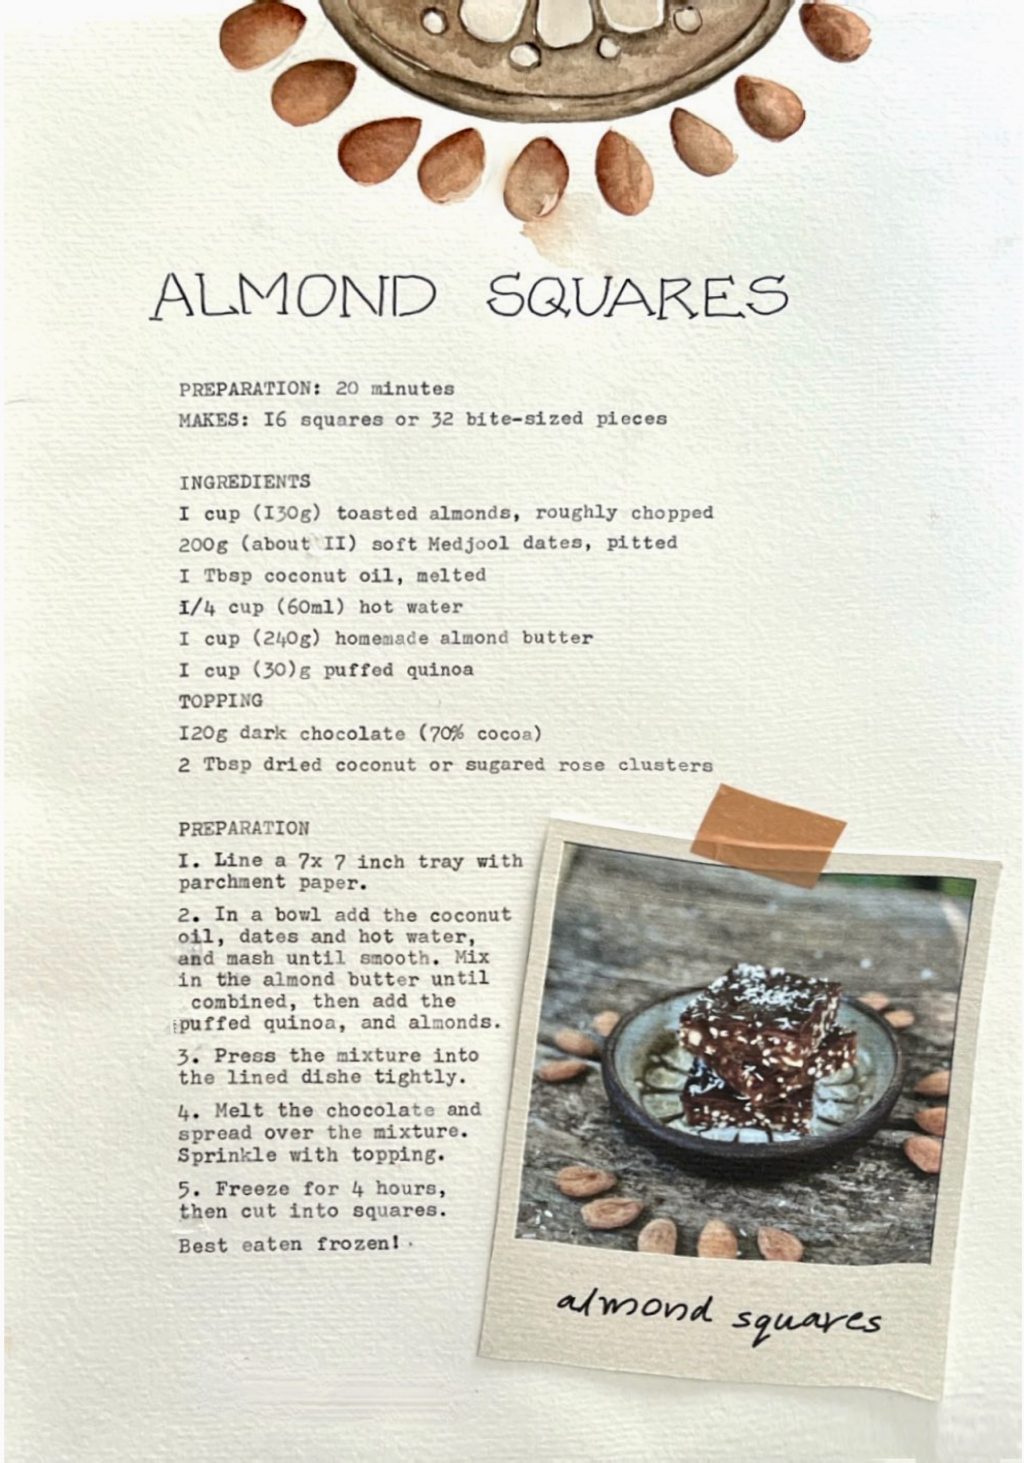 ALMOND SQUARES
PREPARATION: 20 minutes
MAKES: I6 squares or 32 bite-sized pieces
INGREDIENTS
I cup (I30g) toasted almonds, roughly chopped
200g (about II) soft Medjool dates, pitted
I Tbsp coconut oil, melted
I/4 cup (60ml) hot water
I cup (240g) homemade almond butter
I cup (30)g puffed quinoa
TOPPING
I20g dark chocolate (70% cocoa)
2 Tbsp dried coconut or sugared rose clusters
PREPARATION
I. Line a 7x 7 inch tray with
parchment paper.
2. In a bowl add the coconut
oil, dates and hot water,
and mash until smooth. Mix
in the almond butter until
combined, then add the
puffed quinoa, and almonds.
3. Press the mixture into
the lined dishe tightly.
4. Melt the chocolate and
spread over the mixture.
Sprinkle with topping.
5. Freeze for 4 hours,
then cut into squares.
Best eaten frozen!
almond squares